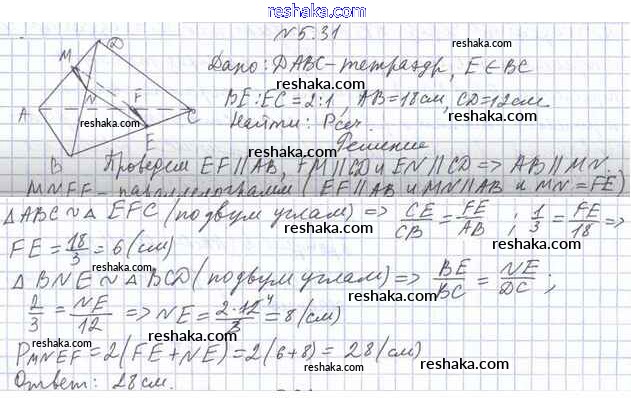 reshak.ru
№5.31
Дано: DABC - тетраэдр, E ∈ BC
BE : EC = 2:1, AB = 18 см, CD = 12 см.
Найти: Pсеч.
Решение
Проведем EF || AB, FM || CD и EN || CD => AB || MN
MNEF - параллелограмм (EF || AB и MN || AB и MN = FE)
△ABC ~ △EFC (по двум углам) => CE/CB = FE/AB ; 1/3 = FE/18 =>
FE = 18/3 = 6 (см)
△BNE ~ △BCD (по двум углам) => BE/BC = NE/DC ;
2/3 = NE/12 => NE = 2·12/3 = 8 (см)
P MNEF = 2(FE + NE) = 2(6+8) = 28 (см)
Ответ: 28 см.
M
D
N
F
A
C
E
B
reshaka.ru
reshaka.ru
reshaka.ru
reshaka.ru
reshaka.ru
reshaka.ru
reshaka.ru
reshaka.ru
reshaka.ru
reshaka.ru
reshaka.ru
reshaka.ru
reshak.ru